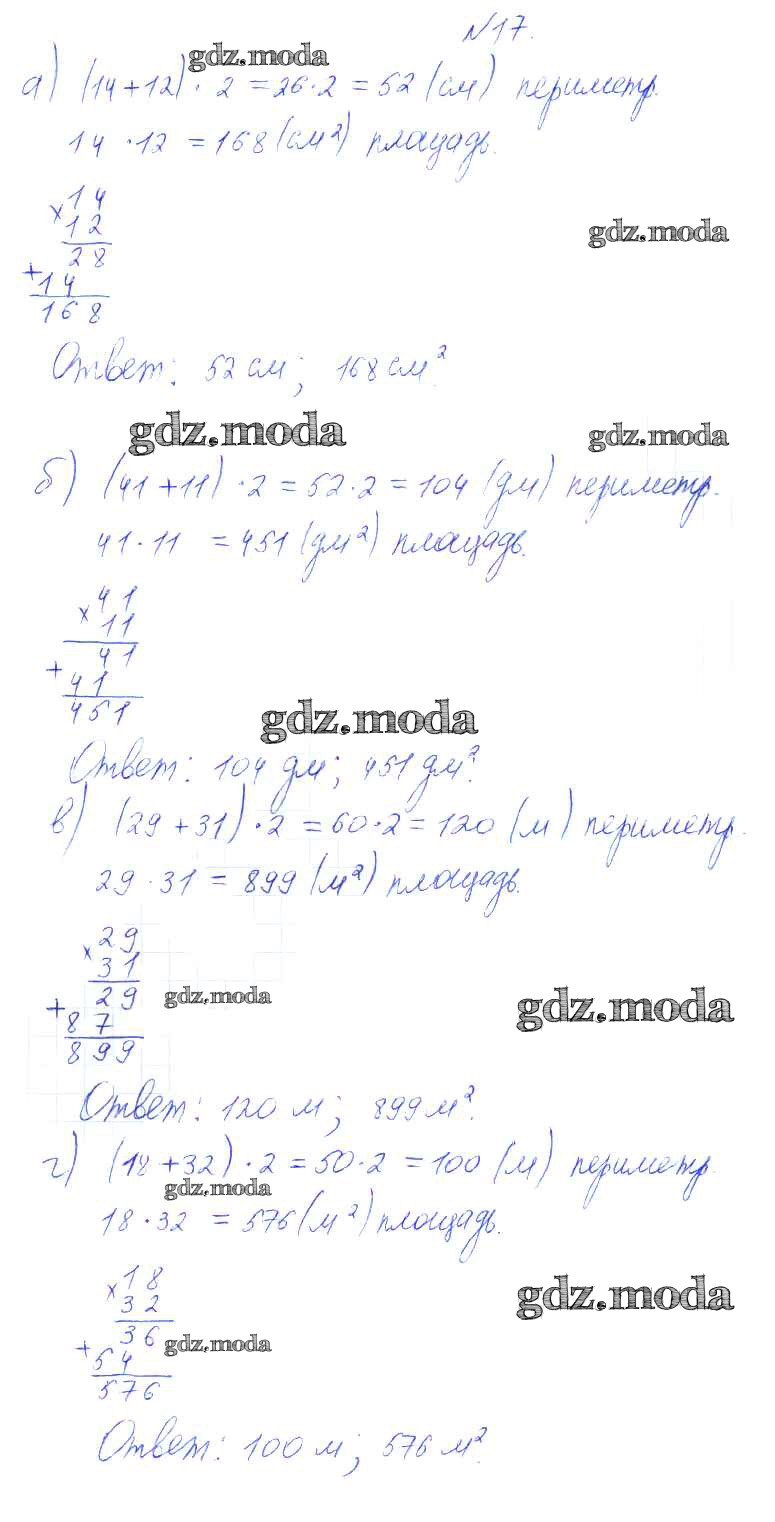 №17.
gdz.moda
а) (14+12)·2=26·2=52(см) периметр.
14·12=168(см²) площадь.
×14
12
gdz.moda
28
+14
168
Ответ: 52 см; 168 см².
gdz.moda gdz.moda
б) (41+11)·2=52·2=104(дм) периметр.
41·11=451(дм²) площадь.
×41
11
41
+41
451
gdz.moda
Ответ: 104 дм; 451 дм².
в) (29+31)·2=60·2=120(м) периметр.
29·31=899(м²) площадь.
×29
31
29 gdz.moda gdz.moda
+87
899
Ответ: 120 м; 899 м².
г) (18+32)·2=50·2=100(м) периметр.
gdz.moda
18·32=576(м²) площадь.
×18
32 gdz.moda
36 gdz.moda
+54
576
Ответ: 100 м; 576 м².